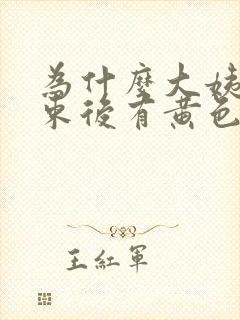 為什麼大姨
束後有黃色
王紅軍